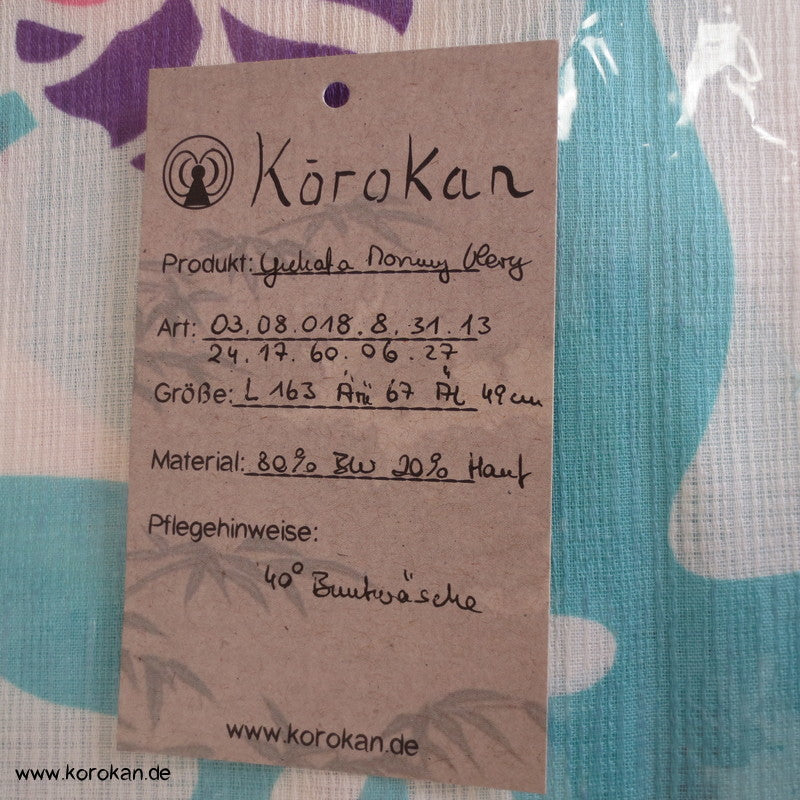 Kōrokan
Produkt: Yukata
Art: 03.08.018.8.31.13
24.17.60.06.27
Größe: L 163 Ärü 67 ÄL 49 cm
Material: 80% BW 20% Hanf
Pflegehinweise:
40° Buntwäsche
www.korokan.de
www.korokan.de